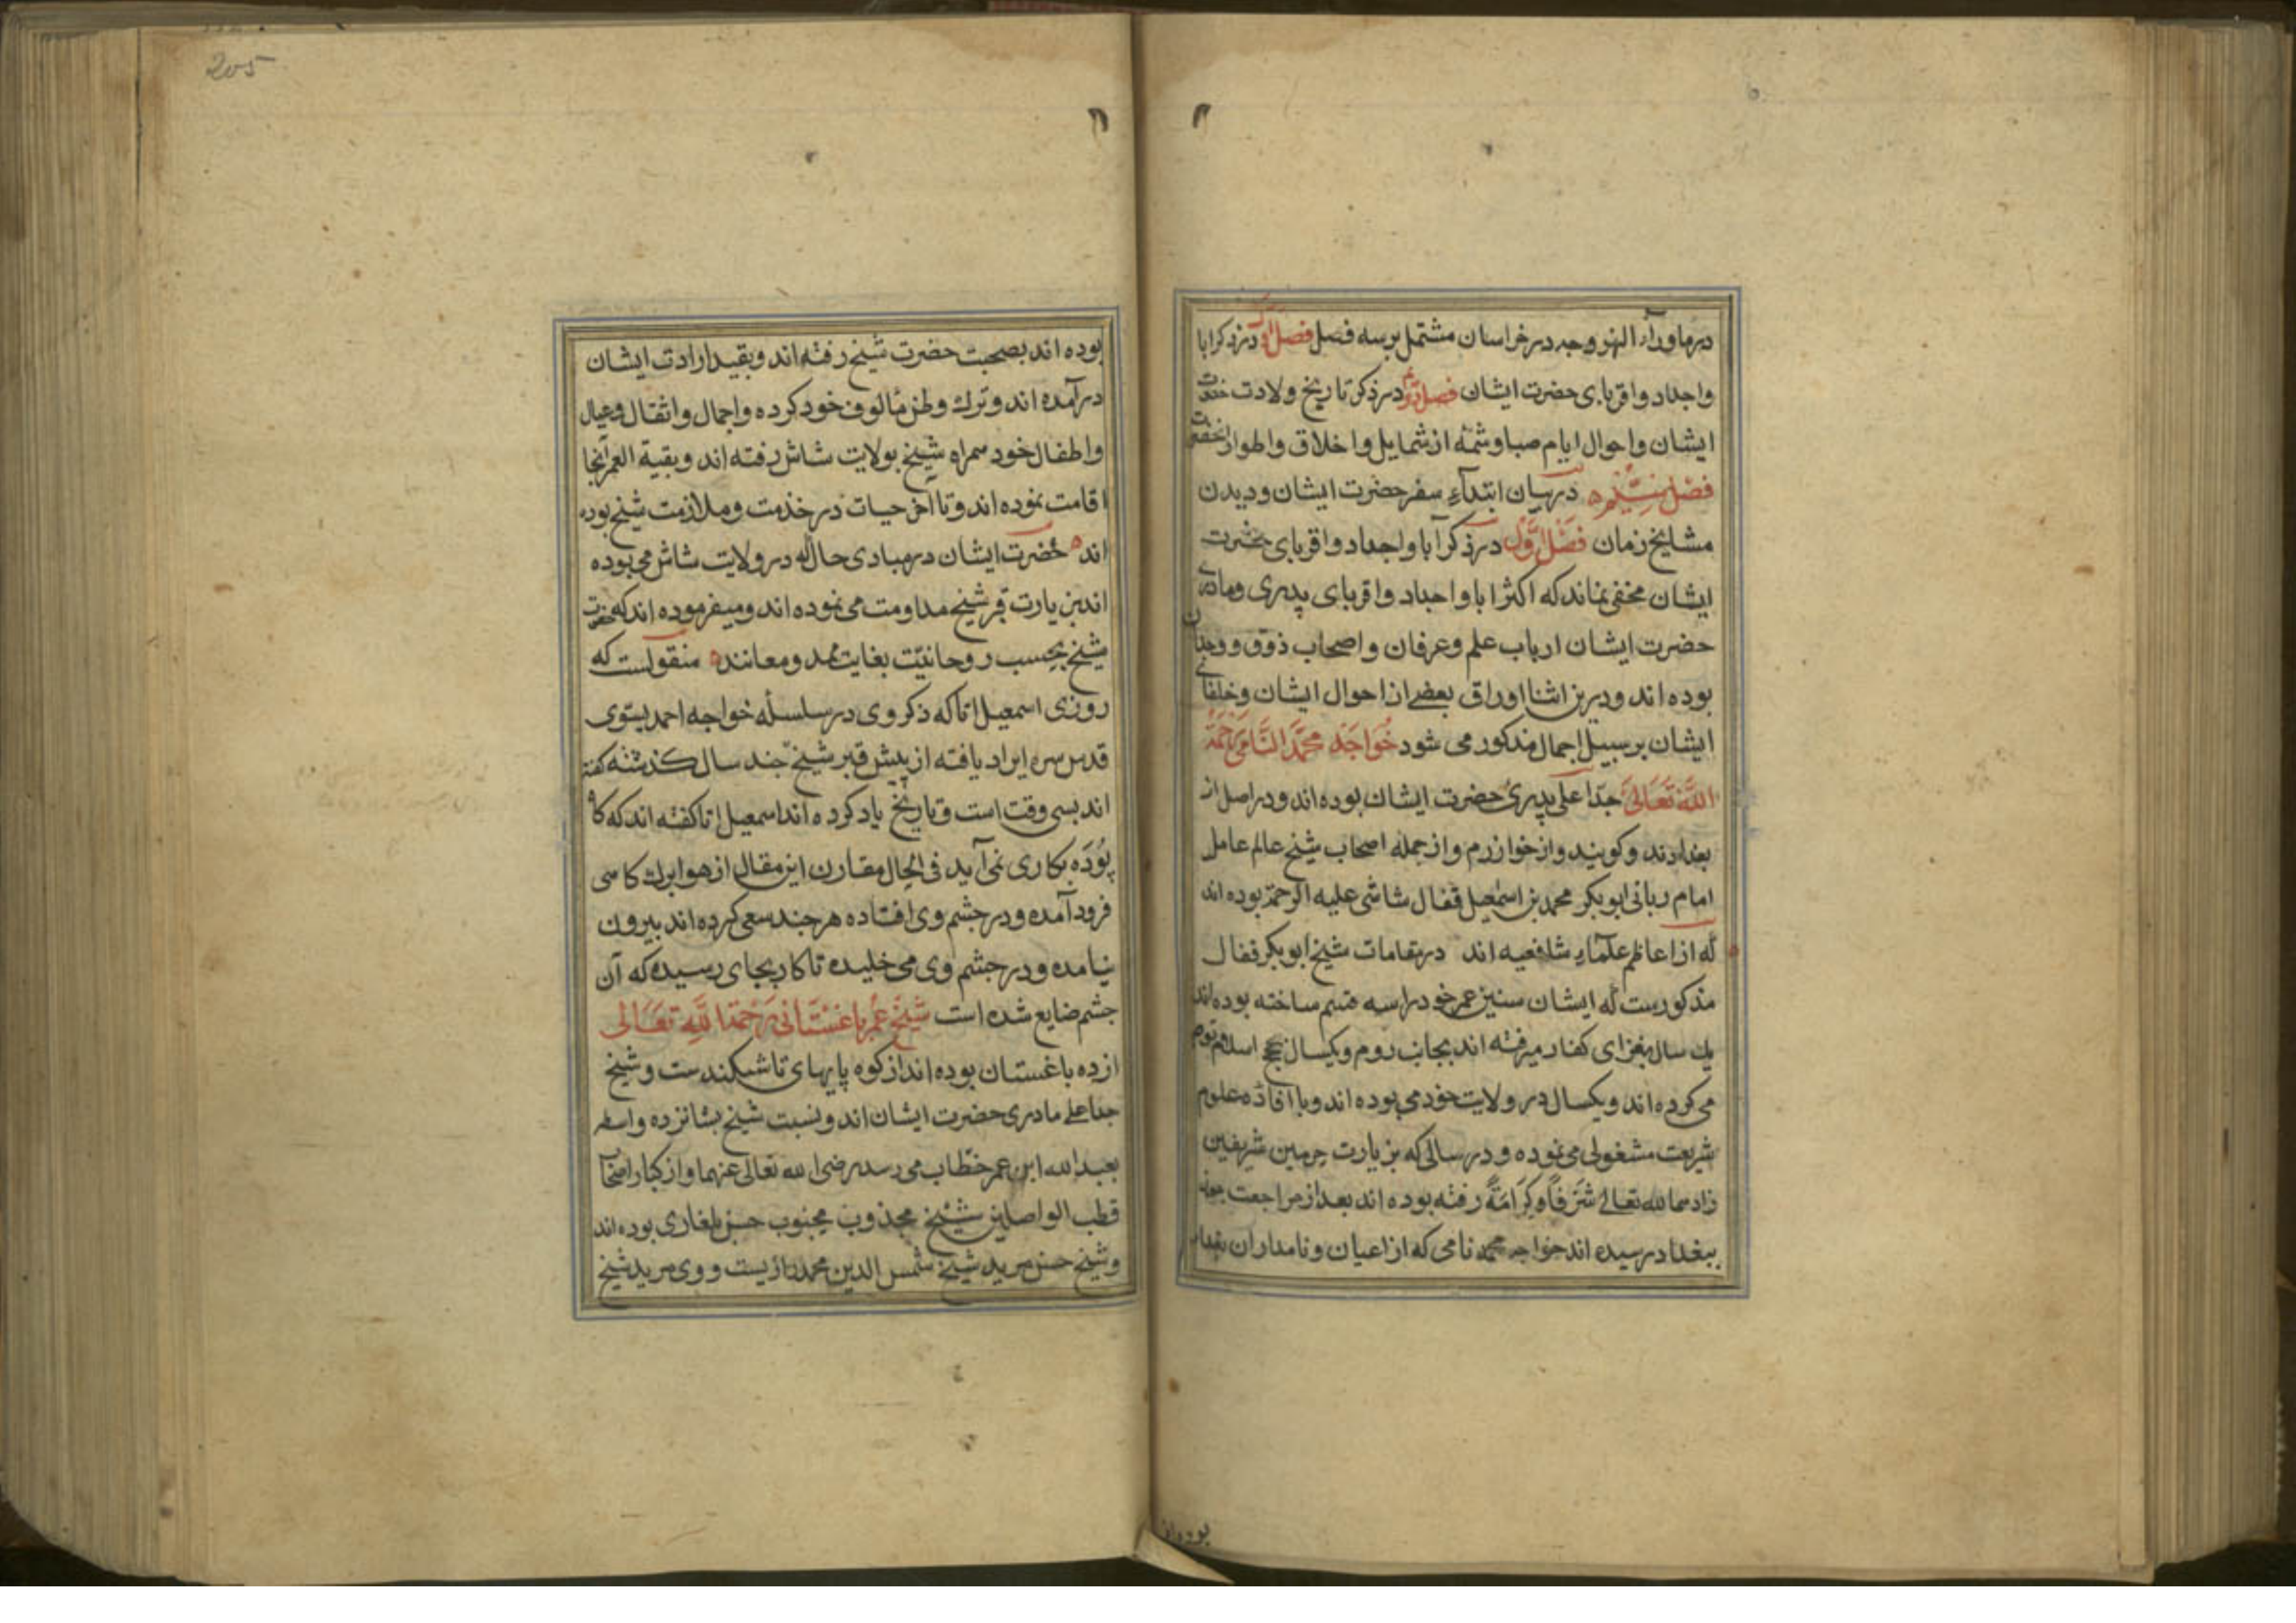 در ماوراء النهر و چه در خراسان مشتمل بر سه فصل فصل اول در ذکر ابا
و اجداد و اقربای حضرت ایشان فصل دوم در ذکر تاریخ ولادت حضرت
ایشان و احوال ایام صبا و شمه از شمایل و اخلاق و اطوار آنحضرت
فصل سیم در بیان ابتداء سفر حضرت ایشان و دیدن
مشایخ زمان فصل اول در ذکر آبا و اجداد و اقربای حضرت
ایشان مخفی نماند که اکثر ابا و اجداد و اقربای پدری و مادری
حضرت ایشان ارباب علم و عرفان و اصحاب ذوق و وجدان
بوده اند و درین اثنا اوراق بعضی از احوال ایشان و خلفای
ایشان بر سبیل اجمال مذکور می شود خواجه محمد النامی رحمة
الله تعالی جد اعلی پدری حضرت ایشان بوده اند و در اصل از
بغدادند و کویند و از خوازرم و از جمله اصحاب شیخ عالم عامل
امام ربانی ابو بکر محمد بن اسمعیل قفال شاشی علیه الرحمة بوده اند
که از اعاظم علماء شافعیه اند در مقامات شیخ ابو بکر قفال
مذکورست که ایشان سنین عمر خود را سه قسم ساخته بوده اند
یک سال بغزای کفار میرفته اند بجانب روم و یکسال حج اسلام توجه
می کرده اند و یکسال در ولایت خود می بوده اند و با افاده علوم
شریعت مشغولی می نموده و در سالی که بزیارت حرمین شریفین
زادهما الله تعالی شرفا و کرامة رفته بوده اند بعد از مراجعت چون
ببغداد رسیده اند خواجه محمد نامی که از اعیان و نامداران بغداد
بوده اند
205
بوده اند بصحبت حضرت شیخ رفته اند و بقید ارادت ایشان
درآمده اند و ترک وطن مألوف خود کرده و اجمال و اثقال و عیال
و اطفال خود همراه شیخ بولایت شاش رفته اند و بقیة العمر آنجا
اقامت نموده اند و تا آخر حیات در خدمت و ملازمت شیخ بوده
اند حضرت ایشان در مبادی حال که در ولایت شاش می بوده
اند بزیارت قبر شیخ مداومت می نموده اند و میفرموده اند که حضرت
شیخ بحسب روحانیت بغایت ممد و معانند منقولست که
روزی اسمعیل اتا که ذکر وی در سلسله خواجه احمد یسوی
قدس سره ایراد یافته از پیش قبر شیخ چند سال کذشته کفته
اند بسی وقت است و تاریخ یاد کرده اند اسمعیل اتا کفته اند که کاه
پوده بکاری نمی آید فی الحال مقارن این مقال از هوا برک کاهی
فرود آمده و در چشم وی افتاده هر چند سعی کرده اند بیرون
نیامده و در چشم وی می خلیده تا کار بجای رسیده که آن
چشم ضایع شده است شیخ عمر باغستانی رحمة الله تعالی
از ده باغستان بوده اند از کوه پایهای تاشکندست و شیخ
جد اعلی مادری حضرت ایشان اند و نسبت شیخ بشانزده واسطه
بعبد الله ابن عمر خطاب می رسد رضی الله تعالی عنهما و از کبار اصحاب
قطب الواصلین شیخ مجذوب محبوب حسن بلغاری بوده اند
و شیخ حسن مرید شیخ شمس الدین محمد رازیست و وی مرید شیخ